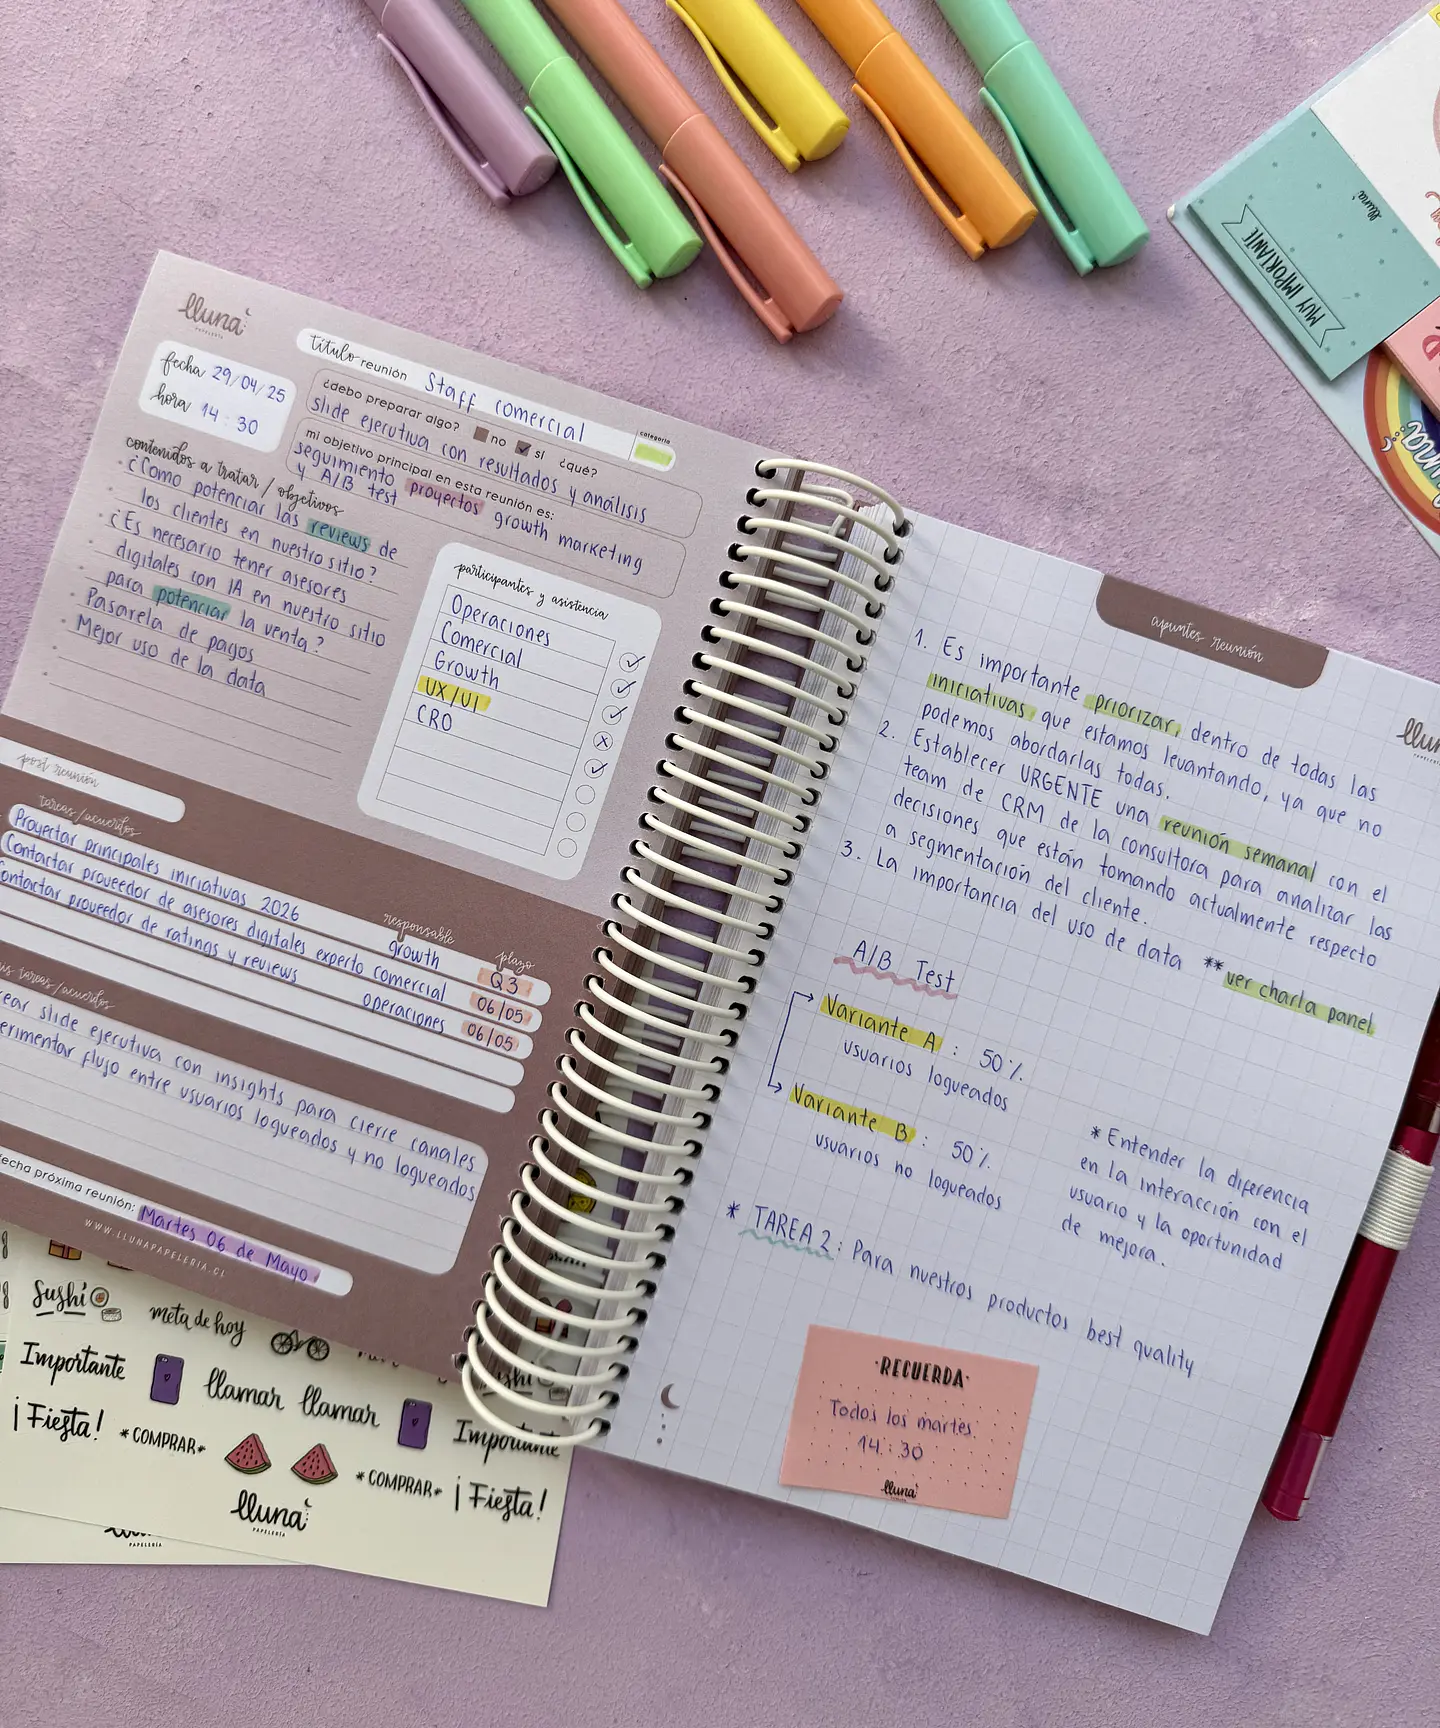 lluna
PAPELERÍA
fecha 29/04/25
hora 14:30
título reunión Staff comercial
categoría
¿debo preparar algo? no sí ¿qué?
slide ejecutiva con resultados y análisis
mi objetivo principal en esta reunión es:
seguimiento proyectos growth marketing
y A/B test
contenidos a tratar / objetivos
· ¿Como potenciar las reviews de
los clientes en nuestro sitio?
· ¿Es necesario tener asesores
digitales con IA en nuestro sitio
para potenciar la venta?
· Pasarela de pagos
· Mejor uso de la data
participantes y asistencia
Operaciones
Comercial
Growth
UX/UI
CRO
post reunión
tareas/acuerdos
responsable
plazo
Proyectar principales iniciativas 2026 growth Q3
Contactar proveedor de asesores digitales experto comercial 06/05
ontactar proveedor de ratings y reviews operaciones 06/05
is tareas/acuerdos
rear slide ejecutiva con insights para cierre canales
erimentar flujo entre usuarios logueados y no logueados
fecha próxima reunión: Martes 06 de Mayo
WWW.LLUNAPAPELERIA.CL
apuntes reunión
lluna
PAPELERÍA
1. Es importante priorizar, dentro de todas las
iniciativas, que estamos levantando, ya que no
podemos abordarlas todas.
2. Establecer URGENTE una reunión semanal con el
team de CRM de la consultora para analizar las
decisiones que están tomando actualmente respecto
a segmentación del cliente.
3. La importancia del uso de data ** ver charla panel
A/B Test
Variante A : 50%
usuarios logueados
Variante B : 50%
usuarios no logueados
* Entender la diferencia
en la interacción con el
usuario y la oportunidad
de mejora.
* TAREA 2: Para nuestros productos best quality
·RECUERDA·
Todos los martes
14:30
lluna
MUY IMPORTANTE
lluna
luna
Sushi
meta de hoy
Importante
llamar llamar
¡Fiesta!
*COMPRAR*
*COMPRAR*
Importante
¡Fiesta!
lluna
PAPELERÍA
PAPELERÍA